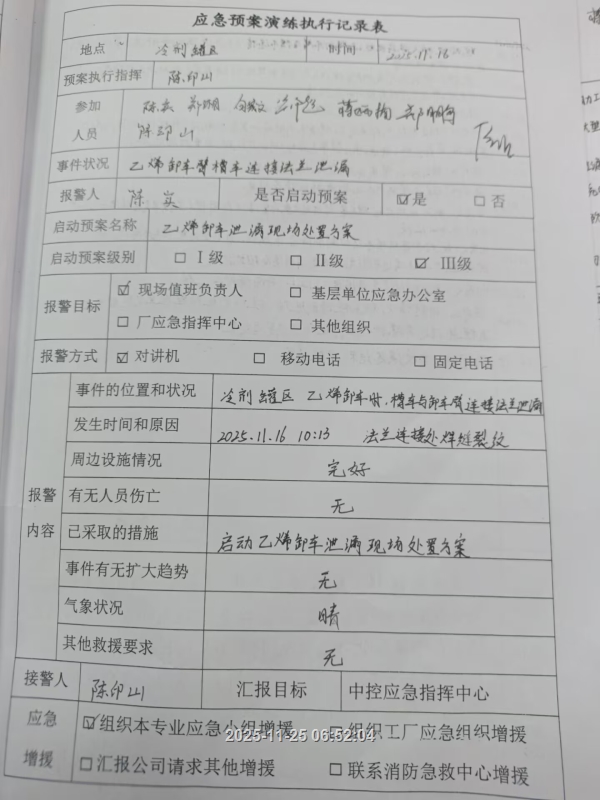 应急预案演练执行记录表
地点 冷剂罐区 时间 2025.11.16
预案执行指挥 陈印山
参加人员 陈英
陈印山
事件状况 乙烯卸车臂槽车连接法兰泄漏
报警人 陈英 是否启动预案 ☑是 □否
启动预案名称 乙烯卸车泄漏现场处置方案
启动预案级别 □Ⅰ级 □Ⅱ级 ☑Ⅲ级
报警目标 ☑现场值班负责人 □基层单位应急办公室
□厂应急指挥中心 □其他组织
报警方式 ☑对讲机 □移动电话 □固定电话
报警内容
事件的位置和状况 冷剂罐区 乙烯卸车时,槽车与卸车臂连接法兰泄漏
发生时间和原因 2025.11.16 10:13 法兰连接处焊缝裂纹
周边设施情况 完好
有无人员伤亡 无
已采取的措施 启动乙烯卸车泄漏现场处置方案
事件有无扩大趋势 无
气象状况 晴
其他救援要求 无
接警人 陈印山 汇报目标 中控应急指挥中心
应急增援 ☑组织本专业应急小组增援 □组织工厂应急组织增援
□汇报公司请求其他增援 □联系消防急救中心增援
2025-11-25 06:52:04